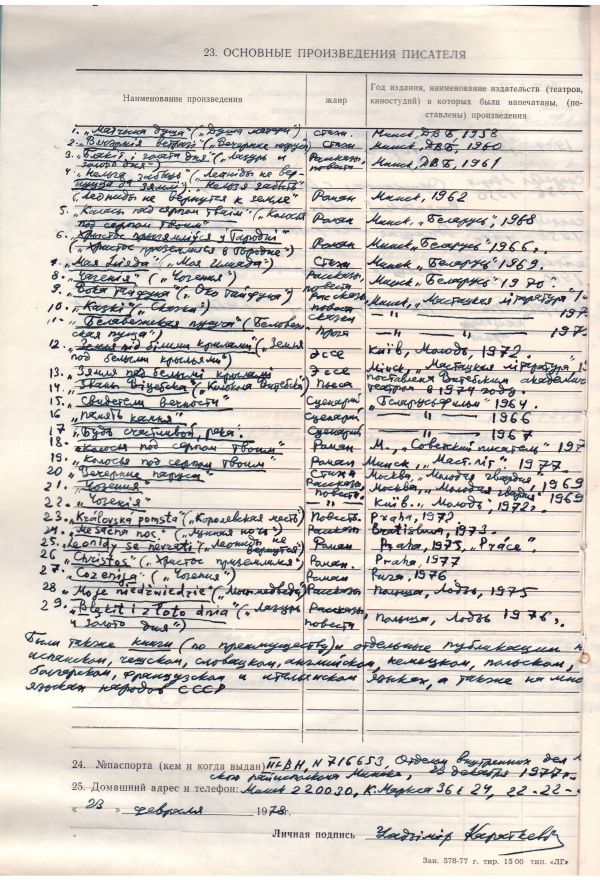 23. ОСНОВНЫЕ ПРОИЗВЕДЕНИЯ ПИСАТЕЛЯ
Наименование произведения жанр Год издания, наименование издательств (театров, киностудий) в которых были напечатаны, (поставлены) произведения
1. „Матчына душа" („Душа матери") стихи. Минск, ДВБ, 1958
2. „Вячэрнія ветразі" („Вечерние паруса") Стихи Минск, ДВБ, 1960
3. „Блакіт і золата дня" („Лазурь и золото дня") Рассказы, повесть Минск, ДВБ, 1961
4. „Нельга забыць" („Леаніды не вернуцца да зямлі). „Нельзя забыть"
(„Леониды не вернутся к земле" Роман Минск, 1962
5. „Каласы пад сярпом тваім" („Колосья под серпом твоим" Роман Минск, „Беларусь", 1968
6. „Хрыстос прызямліўся ў Гародні"
(„Христос приземлился в Гродно") Роман Минск, „Беларусь" 1966.
7. „Мая Іліяда" („Моя Илиада") Стихи Минск, „Беларусь" 1969.
8. „Чазенія" („Чозения") Рассказы, повести Минск, „Беларусь" 1970.
9. „Вока тайфуна" („Око тайфуна") Рассказы, повести Минск, „Мастацкая літаратура"
10. „Казкі" („Сказки") сказки —"— —"— 197
11. „Белавежская пушча" („Беловежская пуща") Проза —"— —"— 197
12. „Земля під білими крилами" („Земля под белыми крыльями") Эссе Київ, Молодь, 1972.
13. „Зямля пад белымі крыламі Эссе Мінск, „Мастацкая літаратура"
14. „Званы Віцебска" („Колокола Витебска) Пьеса поставлена Витебским академич театром в 1974 году.
15. „Свидетели вечности" Сценарий „Беларусьфильм" 1964.
16 „память камня" Сценарий —"— —"— 1966
17 „Будь счастливой, река. Сценарий —"— —"— 1967
18. „Колосья под серпом твоим" Роман М., „Советский писатель" 197
19. „Колосья под серпом твоим" Роман Минск, „Маст. літ." 1977.
20. „Вечерние паруса" Стихи Москва, „Молодая гвардия" 1969
21. „Чозения" Рассказы, повесть. Москва, „Молодая гвардия" 1969
22. „Чозенія" —"— Київ. „Молодь", 1972.
23. „Královska pomsta" („Королевская месть) Повесть. Praha, 1972.
24. „Mesačna noc" („Лунная ночь") Рассказы Bratislava, 1973.
25. „Leonidy se nevrati" („Леониды не вернутся") Роман Praha, 1975, „Práce".
26 „Christos" („Христос приземлился") Роман. Praha, 1977
27. „Cozenija" („Чозения") Роман Рига, 1976
28 „Moje niedźwiedzie" („Мои медведи") Рассказы Польша, Лодзь, 1975
29. „Błękit i złoto dnia" („Лазурь и золото дня") Рассказы, повести Польша, Лодзь 1976.
Были также книги (по преимуществу) и отдельные публикации н
испанском, чешском, словацком, английском, немецком, польском,
болгарском, французском и итальянском языках, а также на мно
языках народов СССР
24. №паспорта (кем и когда выдан) N 716653, Отделом внутренних дел
райисполкома Минска, 23 декабря 1977 г.
25. Домашний адрес и телефон: Минск 220030, К. Маркса 36 к 24, 22-22-
« 23 » февраля 1978 г.
Личная подпись Уладзімір Караткевіч
Зак. 578-77 г. тир. 1500 тип. «ЛГ»